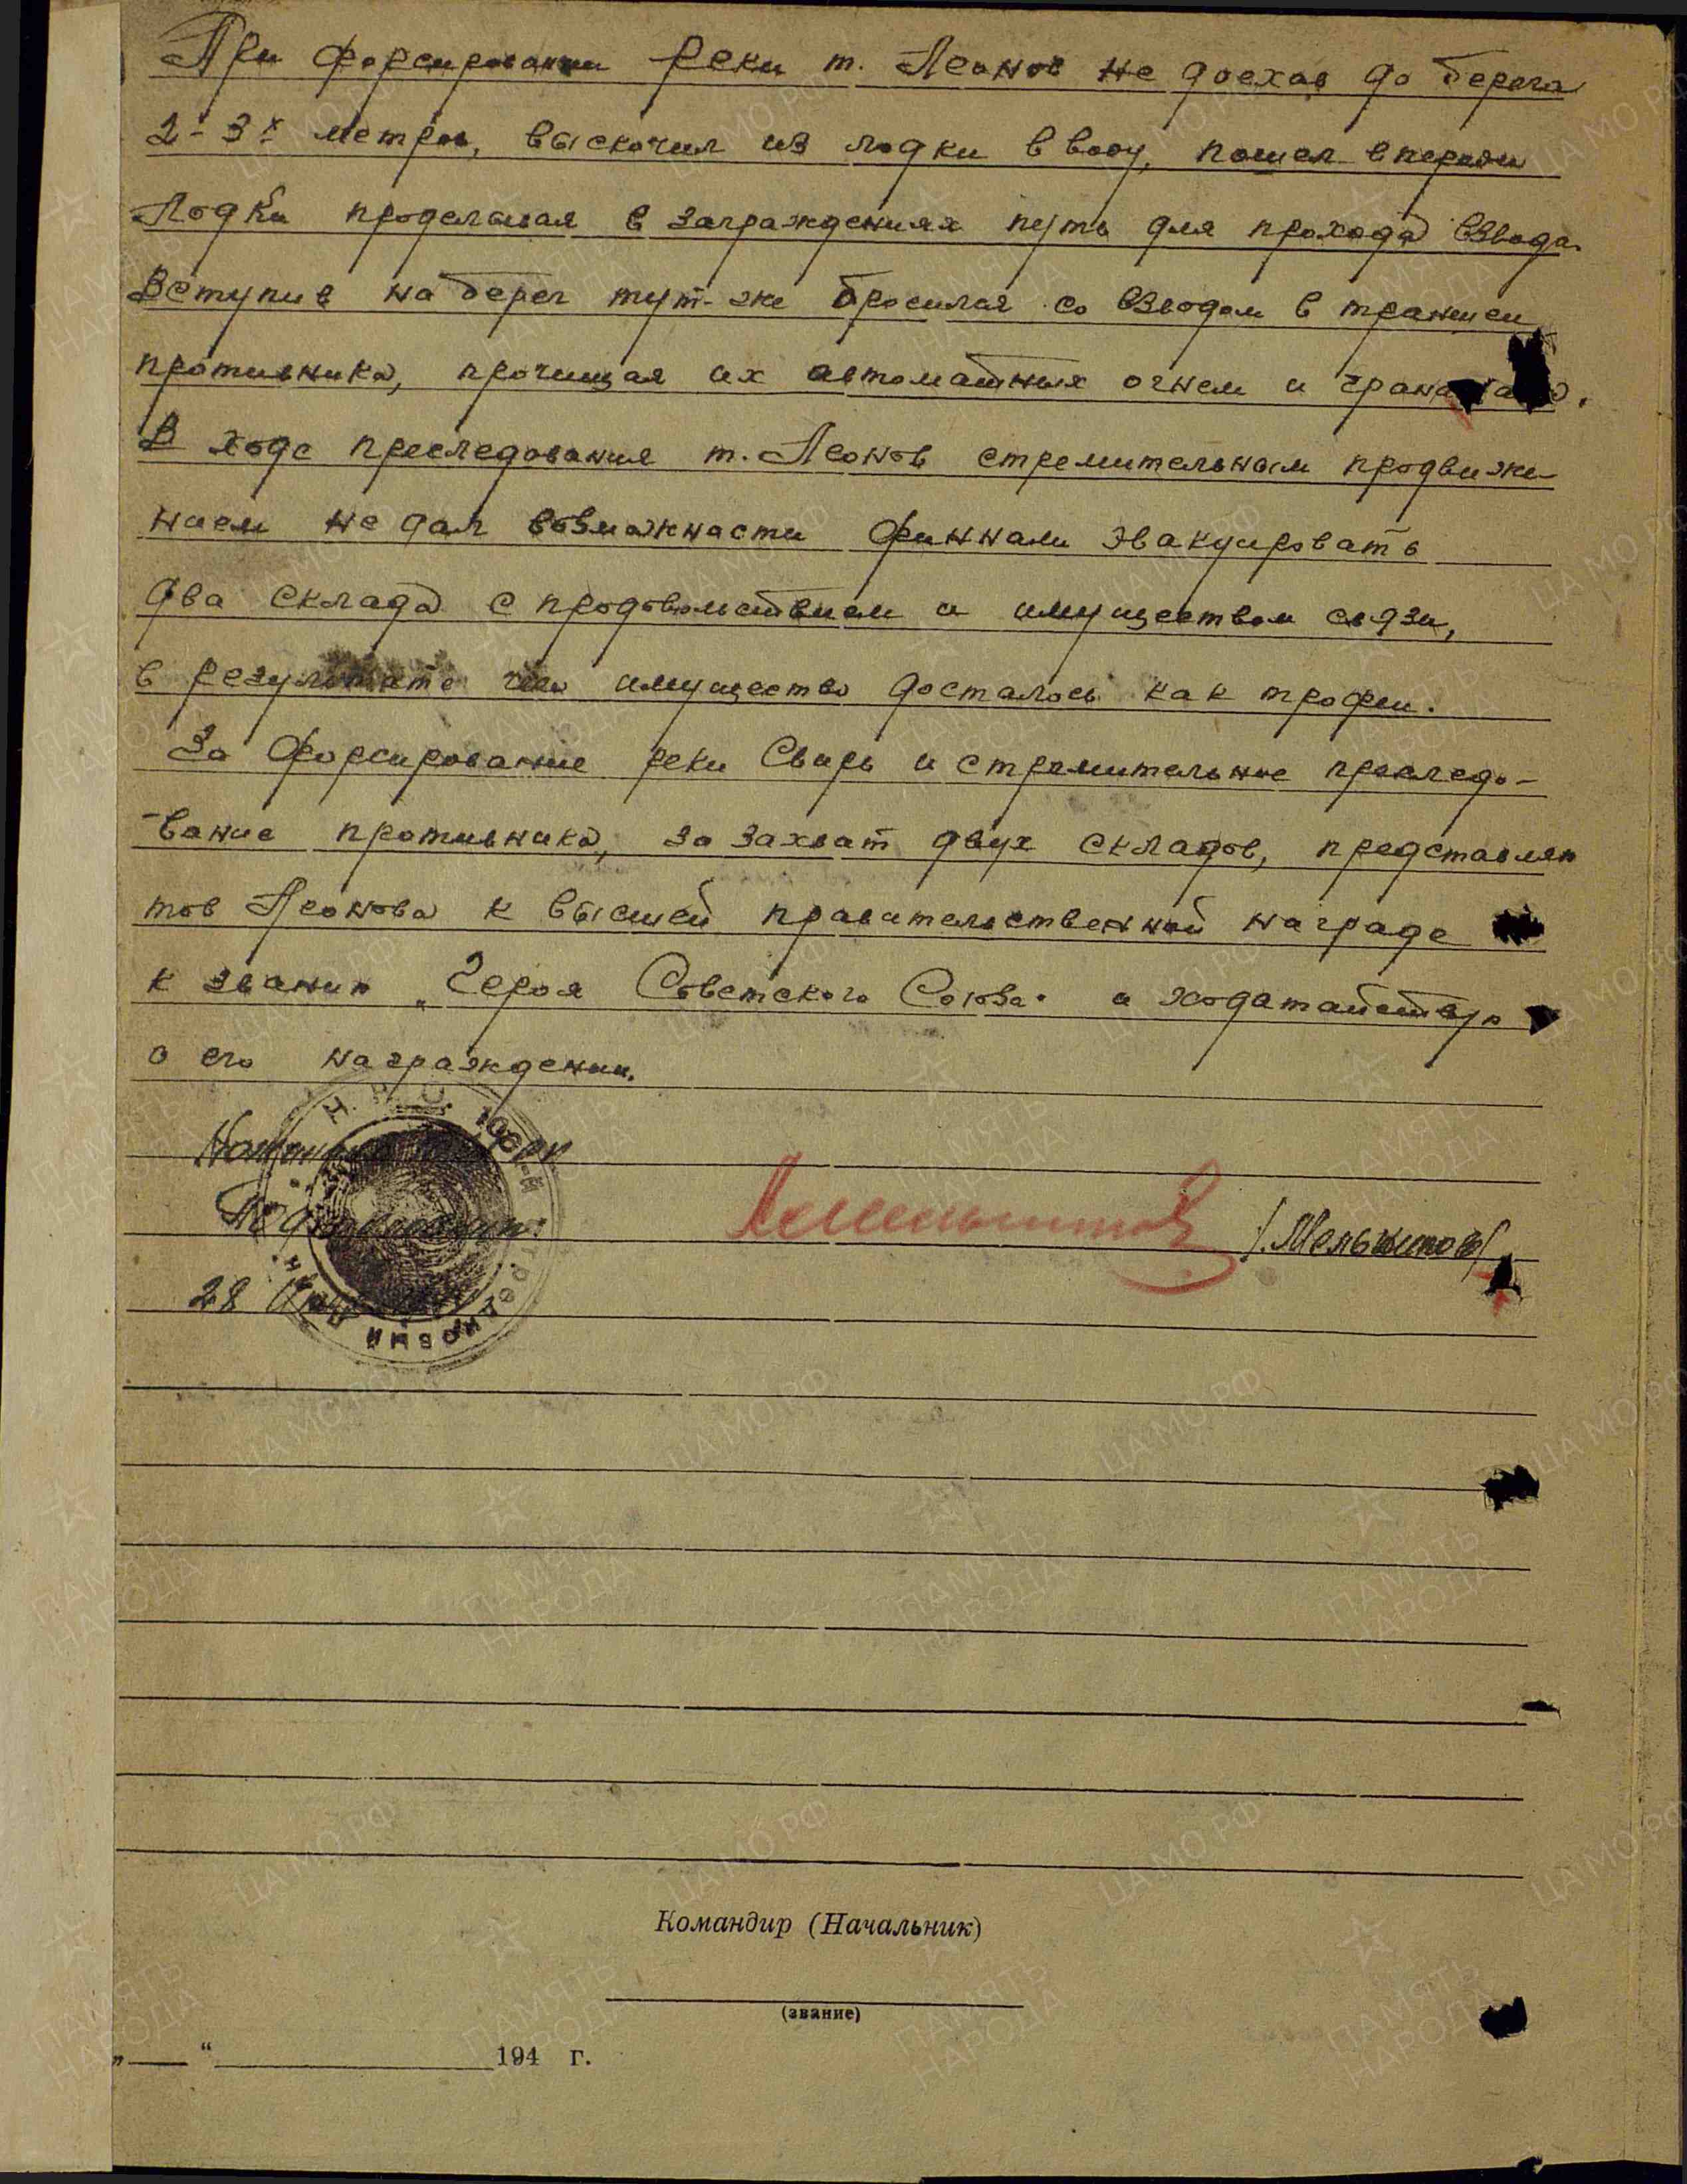 При форсировании реки т. Леонов не доехав до берега
2-3х метров, выскочил из лодки в воду, пошел впереди
Лодки проделывая в заграждениях путь для прохода взвода.
Вступив на берег тут-же бросился со взводом в траншеи
противника, прочищая их автоматным огнем и
В ходе преследования т. Леонов стремительным продвиже-
нием не дал возможности финнам эвакуировать
два склада с продовольствием и имуществом связи,
в результате чего имущество досталось как трофеи.
За форсирование реки Свирь и стремительное преследо-
-вание противника, за захват двух складов, представляю
тов Леонова к высшей правительственной награде
к званию „Героя Советского Союза" и ходатайствую
о его награждении.
/Мельников/
28
Командир (Начальник)
(звание)
„ “ 194 г.
ЦА МО РФ
ПАМЯТЬ
НАРОДА